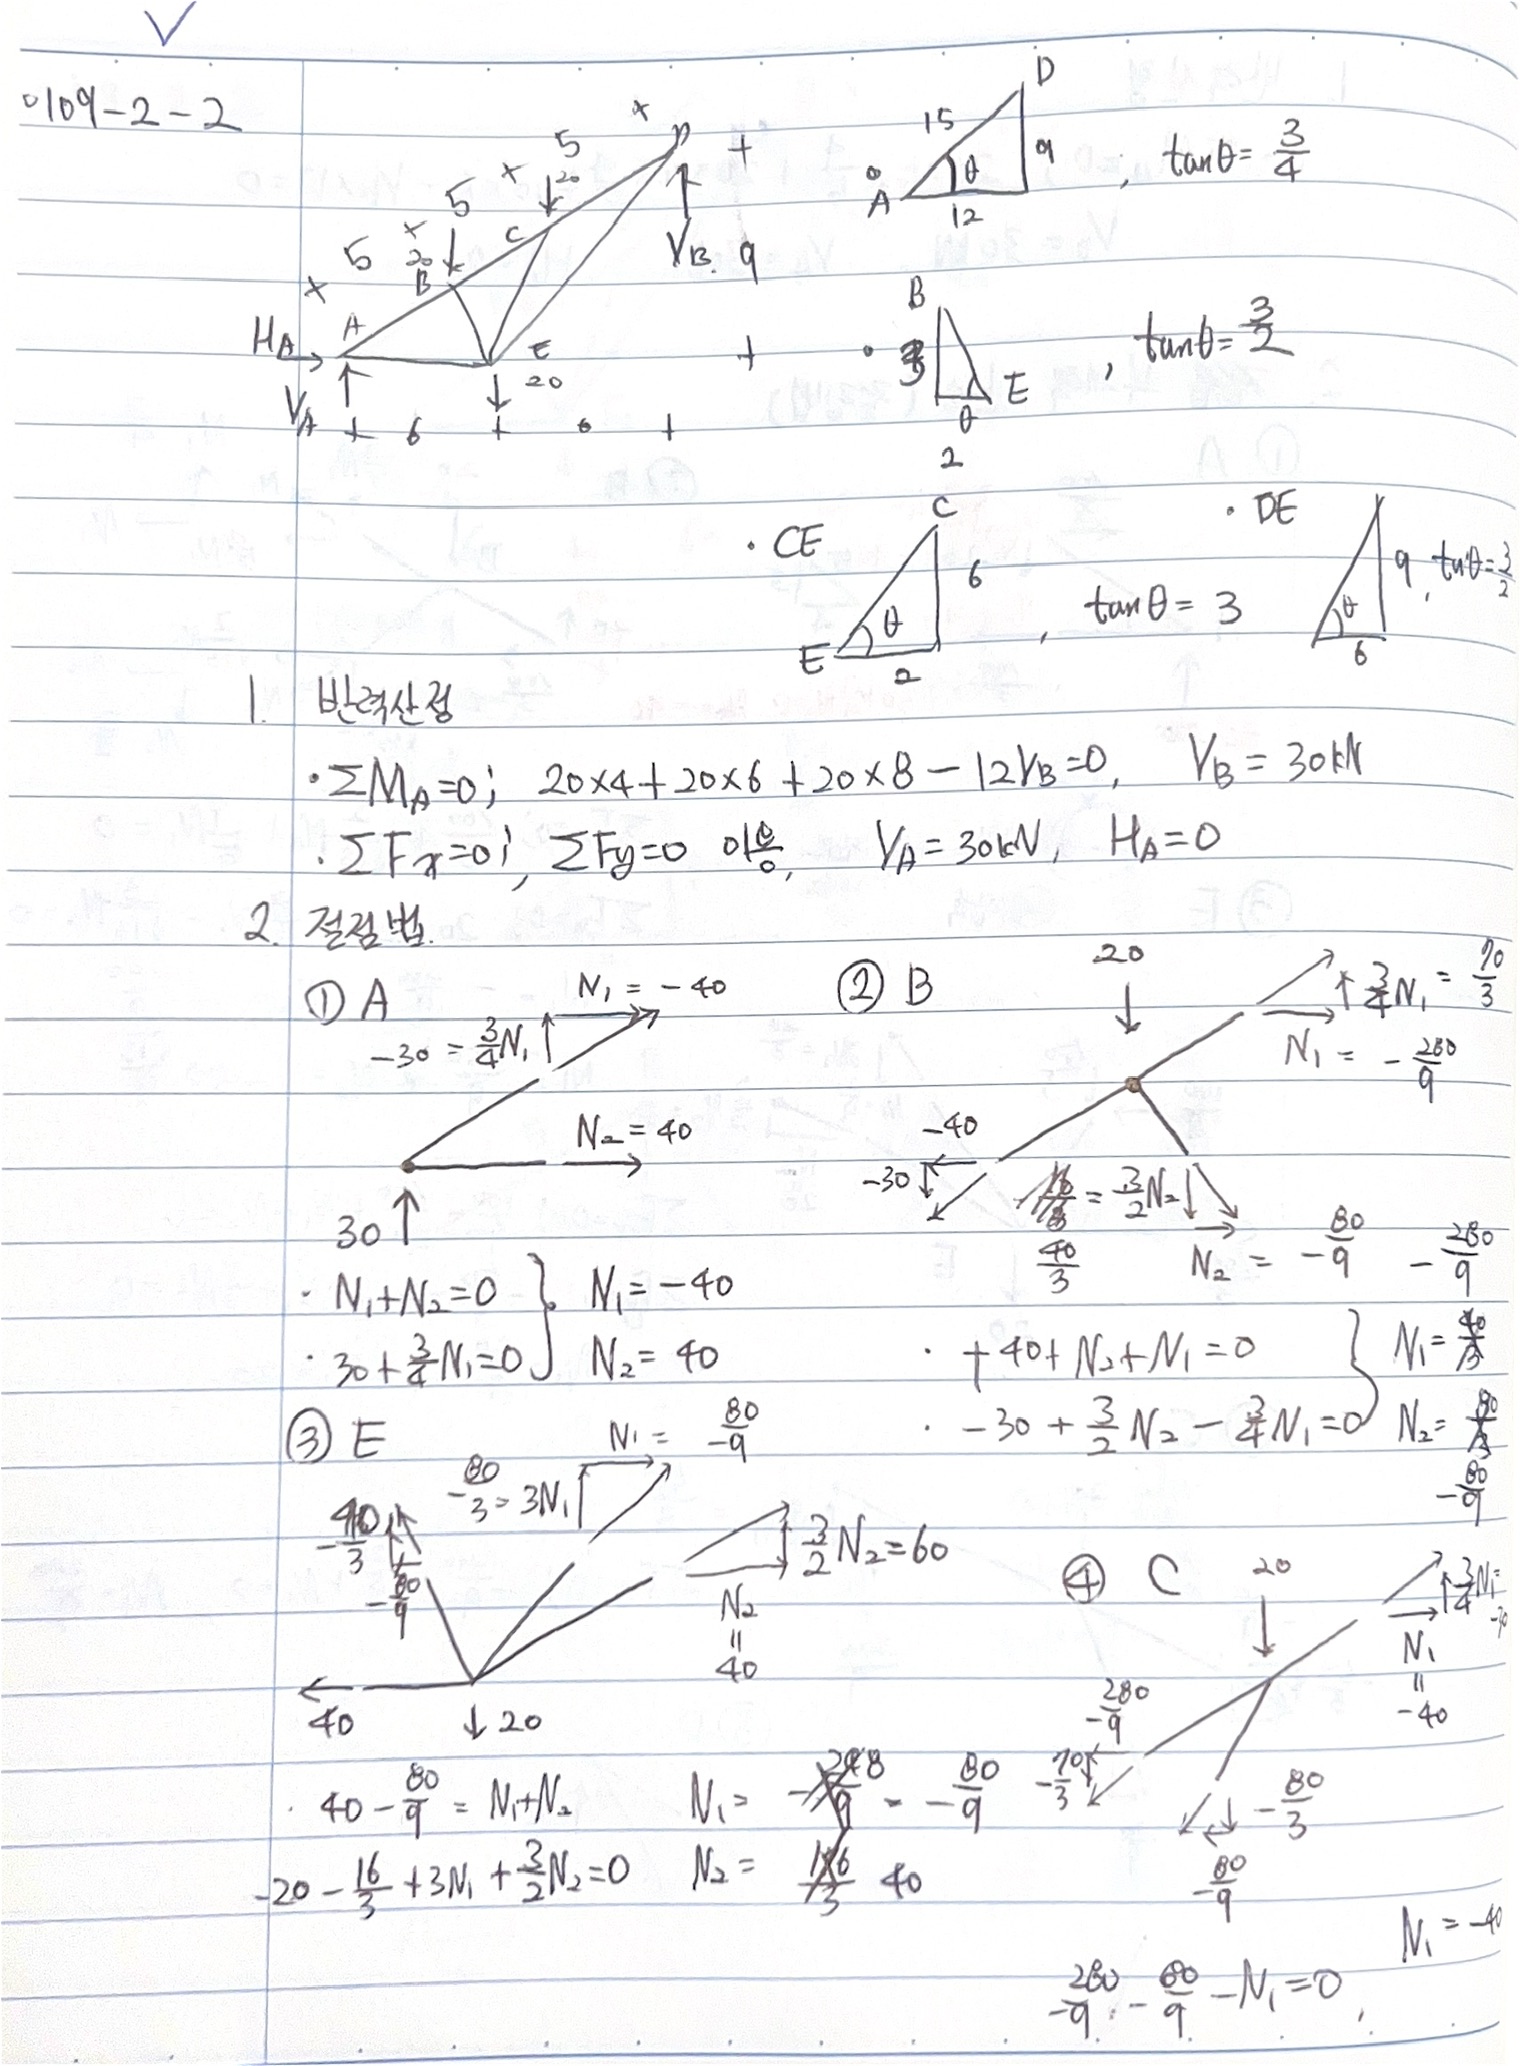 ✓
°109-2-2
5 5 5
20 20 20
A B C D E
H_A V_A V_B. 9
6 6
A 15 D 9 θ 12 , tanθ= 3/4
B 3 E θ 2 , tanθ= 3/2
· CE C 6 θ E 2 , tanθ= 3
· DE 9 θ 6 , tanθ= 3/2
1. 반력산정
· ΣM_A=0; 20×4+20×6+20×8-12V_B=0, V_B=30kN
· ΣFx=0; , ΣFy=0 이용, V_A=30kN, H_A=0
2. 절점법.
① A
N₁ = -40
-30 = 3/4 N₁
N₂ = 40
30
· N₁+N₂=0 } N₁=-40
· 30+3/4 N₁=0 } N₂= 40
② B
20
3/4 N₁ = 70/3
N₁ = -280/9
-40
-30
= 3/2 N₂
40/3
N₂ = -80/9 -280/9
· +40+N₂+N₁=0 } N₁=
· -30+3/2 N₂-3/4 N₁=0 } N₂=
-80/9
③ E
N₁ = -80/9
-80/3 = 3N₁
-40/3
-80/9
3/2 N₂=60
N₂ = 40
40
20
· 40-80/9 = N₁+N₂ N₁= - -80/9
-20-16/3+3N₁+3/2 N₂=0 N₂= 40
④ C
20
3/4 N₁=
N₁ = -40
-280/9
-70/3
-80/3
-80/9
N₁ = -40
-280/9 - 80/9 -N₁=0,